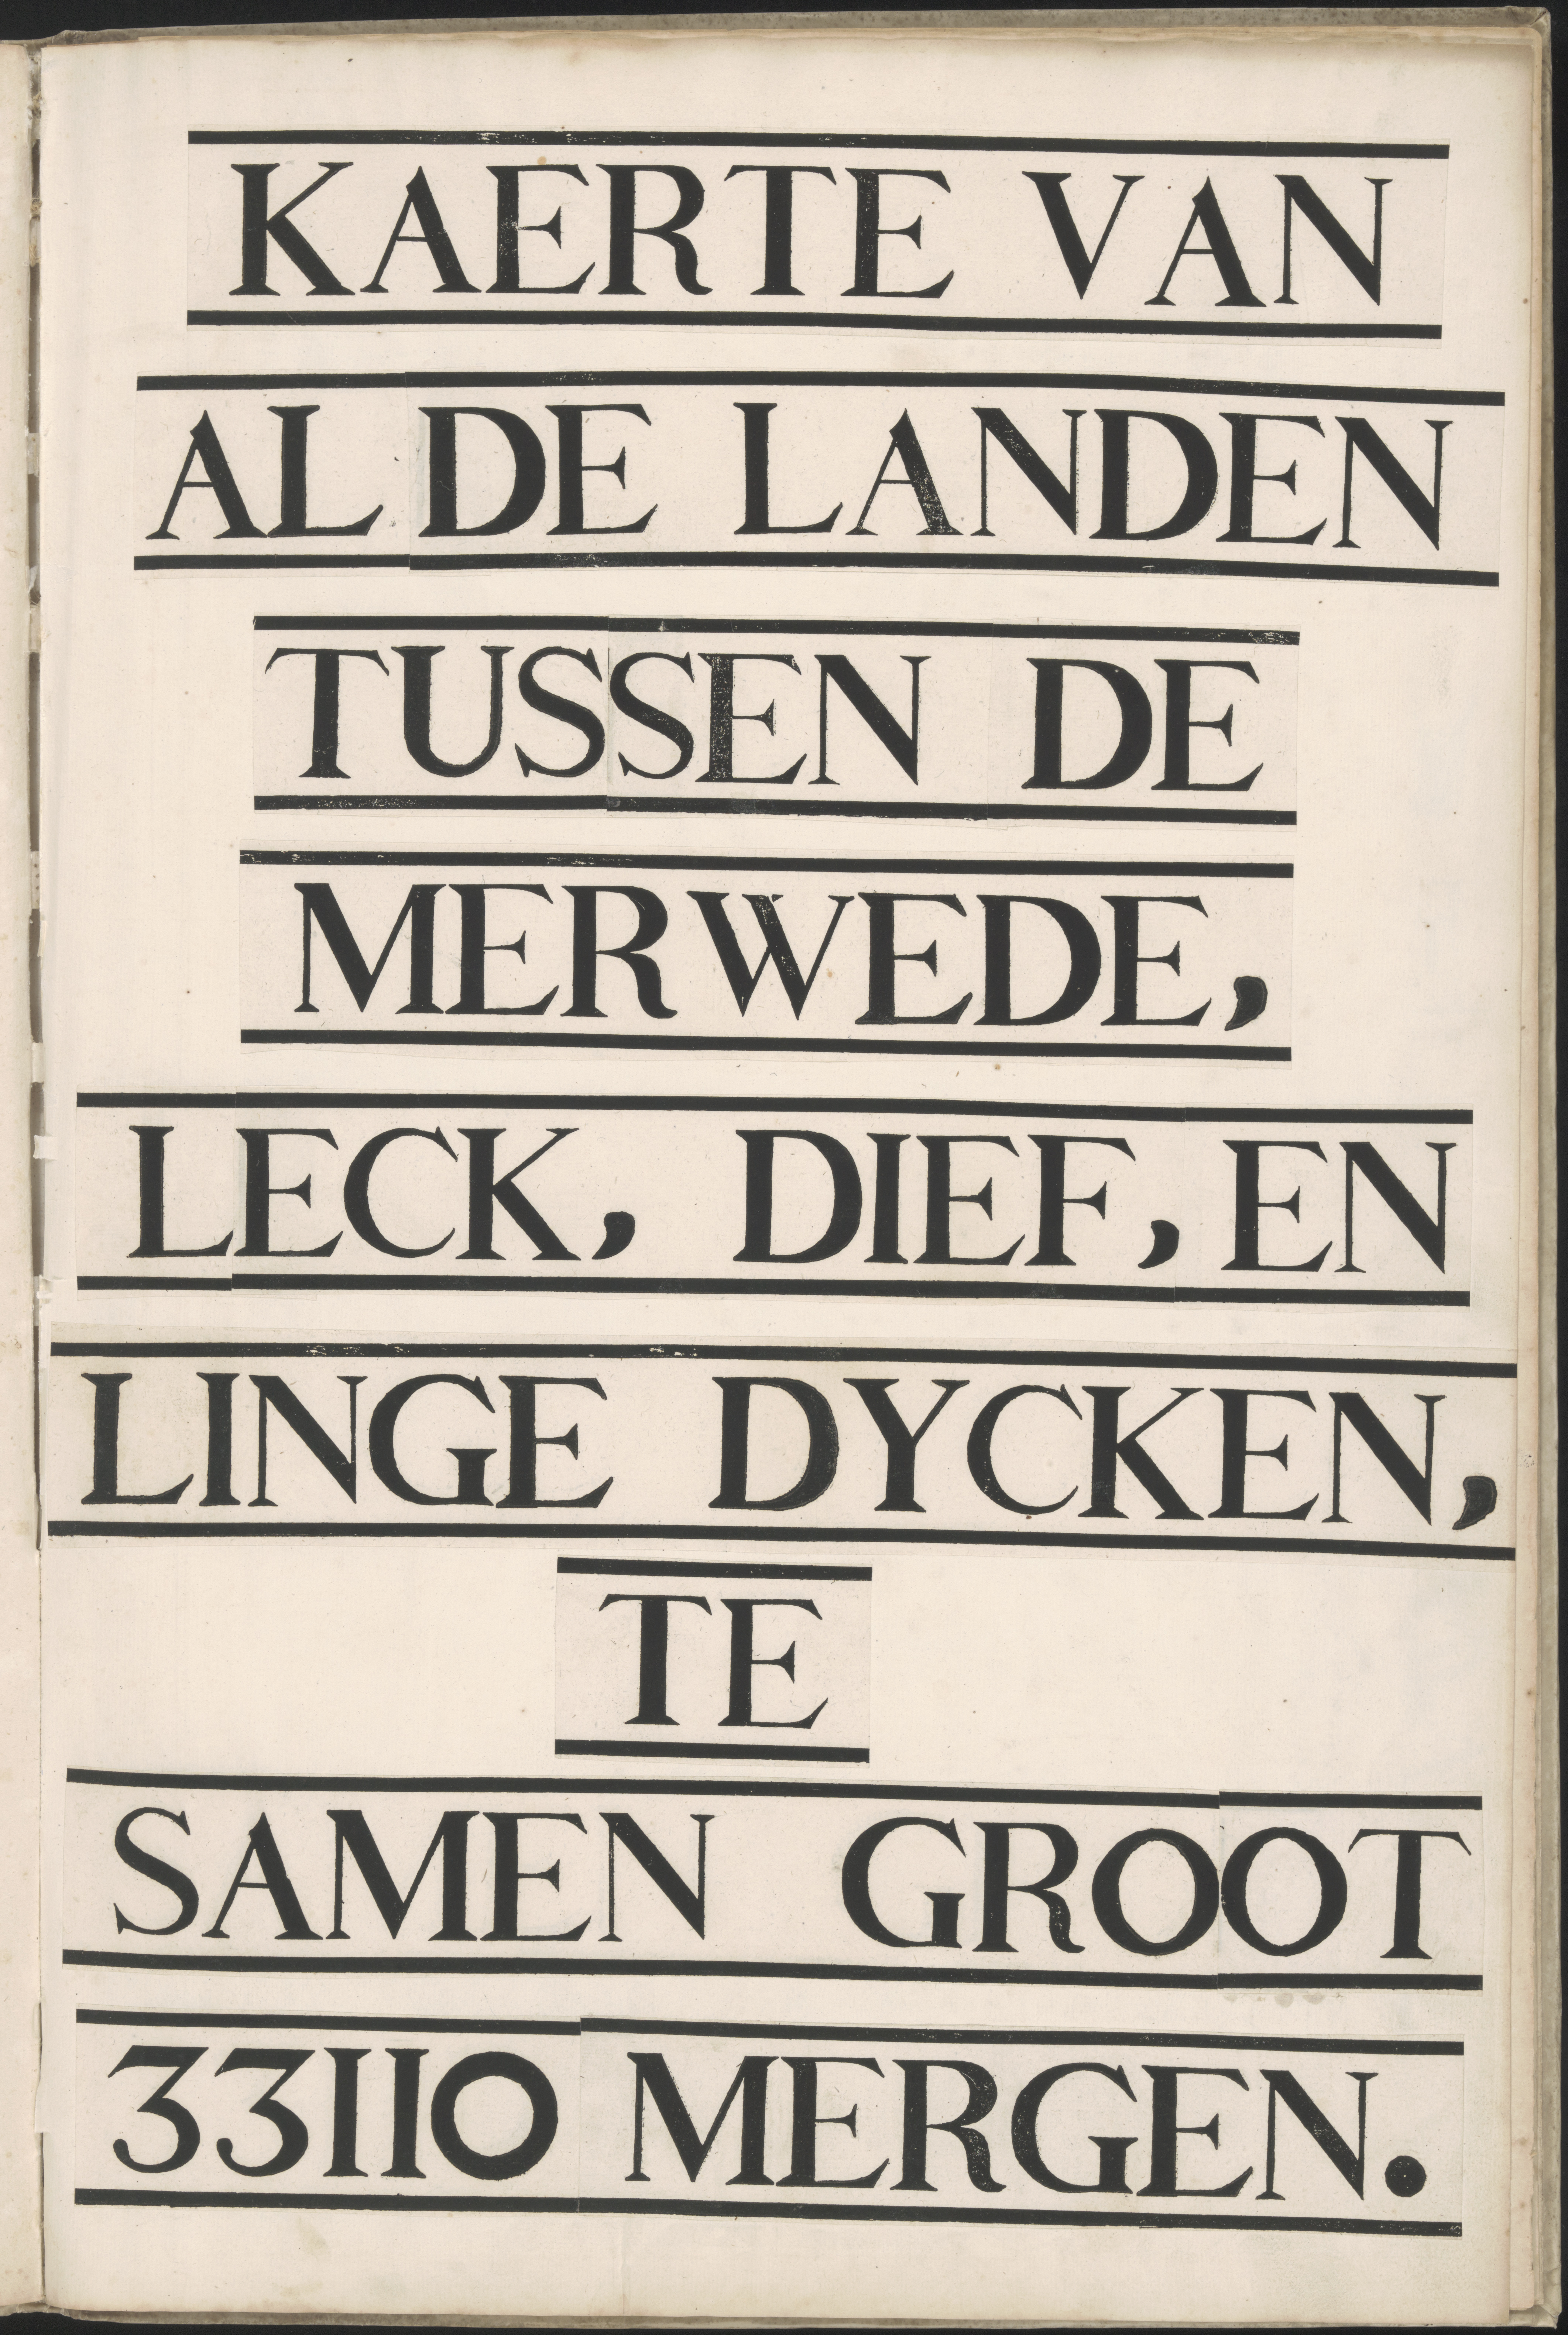 KAERTE VAN
AL DE LANDEN
TUSSEN DE
MERWEDE,
LECK, DIEF, EN
LINGE DYCKEN,
TE
SAMEN GROOT
33110 MERGEN.